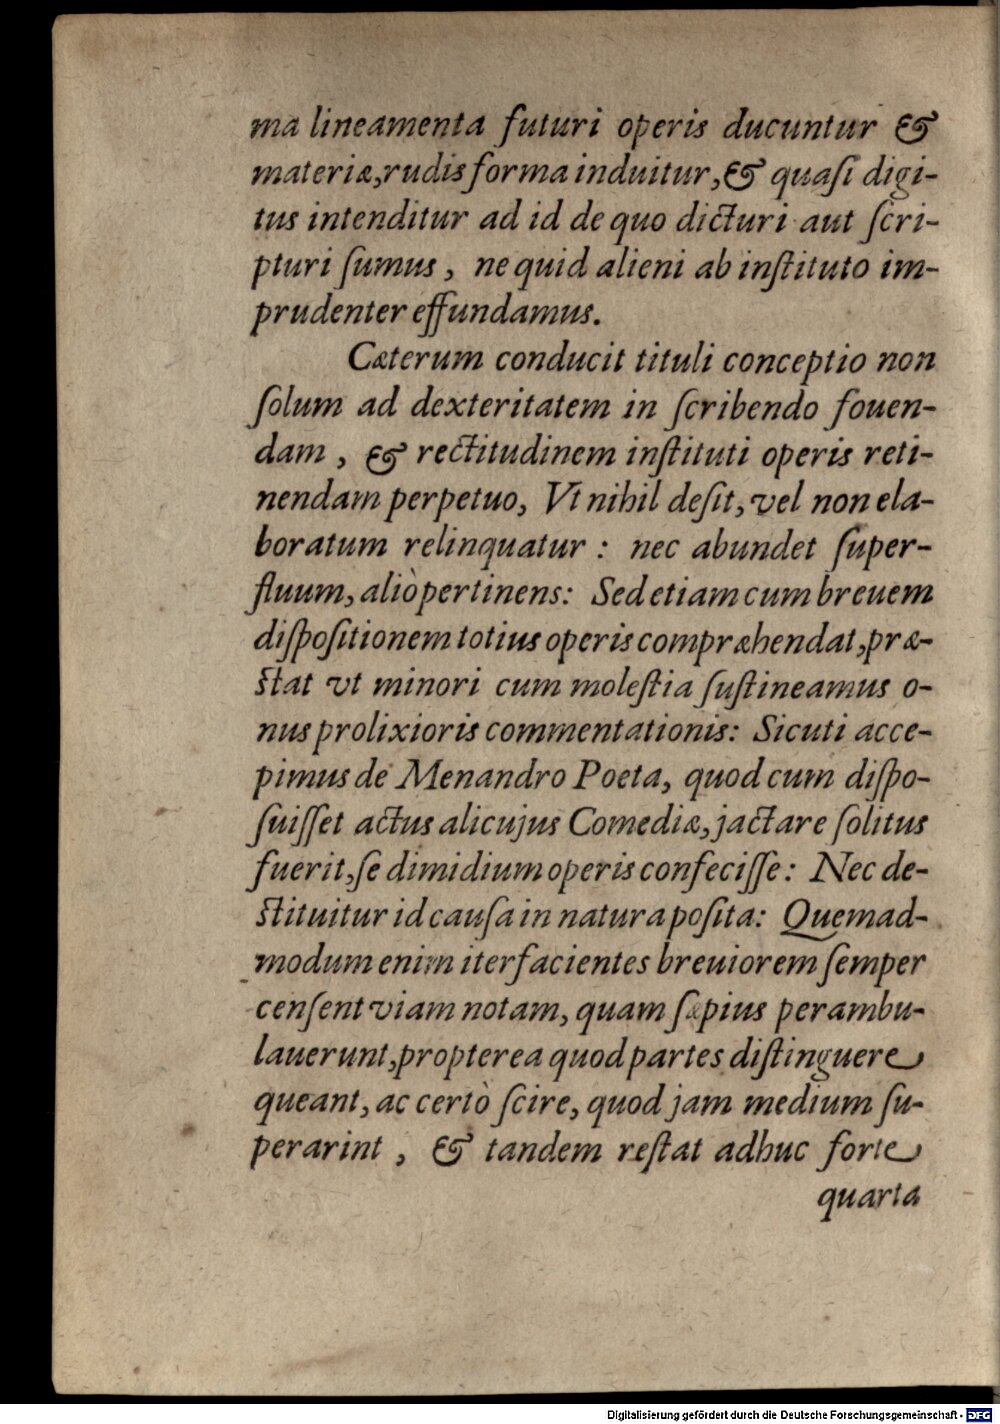 ma lineamenta futuri operis ducuntur &
materiæ, rudis forma induitur, & quaſi digi-
tus intenditur ad id de quo dicturi aut ſcri-
pturi ſumus, ne quid alieni ab inſtituto im-
prudenter effundamus.
Cæterum conducit tituli conceptio non
ſolum ad dexteritatem in ſcribendo fouen-
dam, & rectitudinem inſtituti operis reti-
nendam perpetuo, Vt nihil deſit, vel non ela-
boratum relinquatur: nec abundet ſuper-
fluum, aliò pertinens: Sed etiam cum breuem
diſpoſitionem totius operis compræhendat, præ-
ſtat vt minori cum moleſtia ſuſtineamus o-
nus prolixioris commentationis: Sicuti acce-
pimus de Menandro Poeta, quod cum diſpo-
ſuiſſet actus alicujus Comediæ, jactare ſolitus
fuerit, ſe dimidium operis confeciſſe: Nec de-
ſtituitur id cauſa in natura poſita: Quemad-
modum enim iter facientes breuiorem ſemper
cenſent viam notam, quam ſæpius perambu-
lauerunt, propterea quod partes diſtinguere
queant, ac certò ſcire, quod jam medium ſu-
perarint, & tandem reſtat adhuc forte
quarta
Digitalisierung gefördert durch die Deutsche Forschungsgemeinschaft - DFG